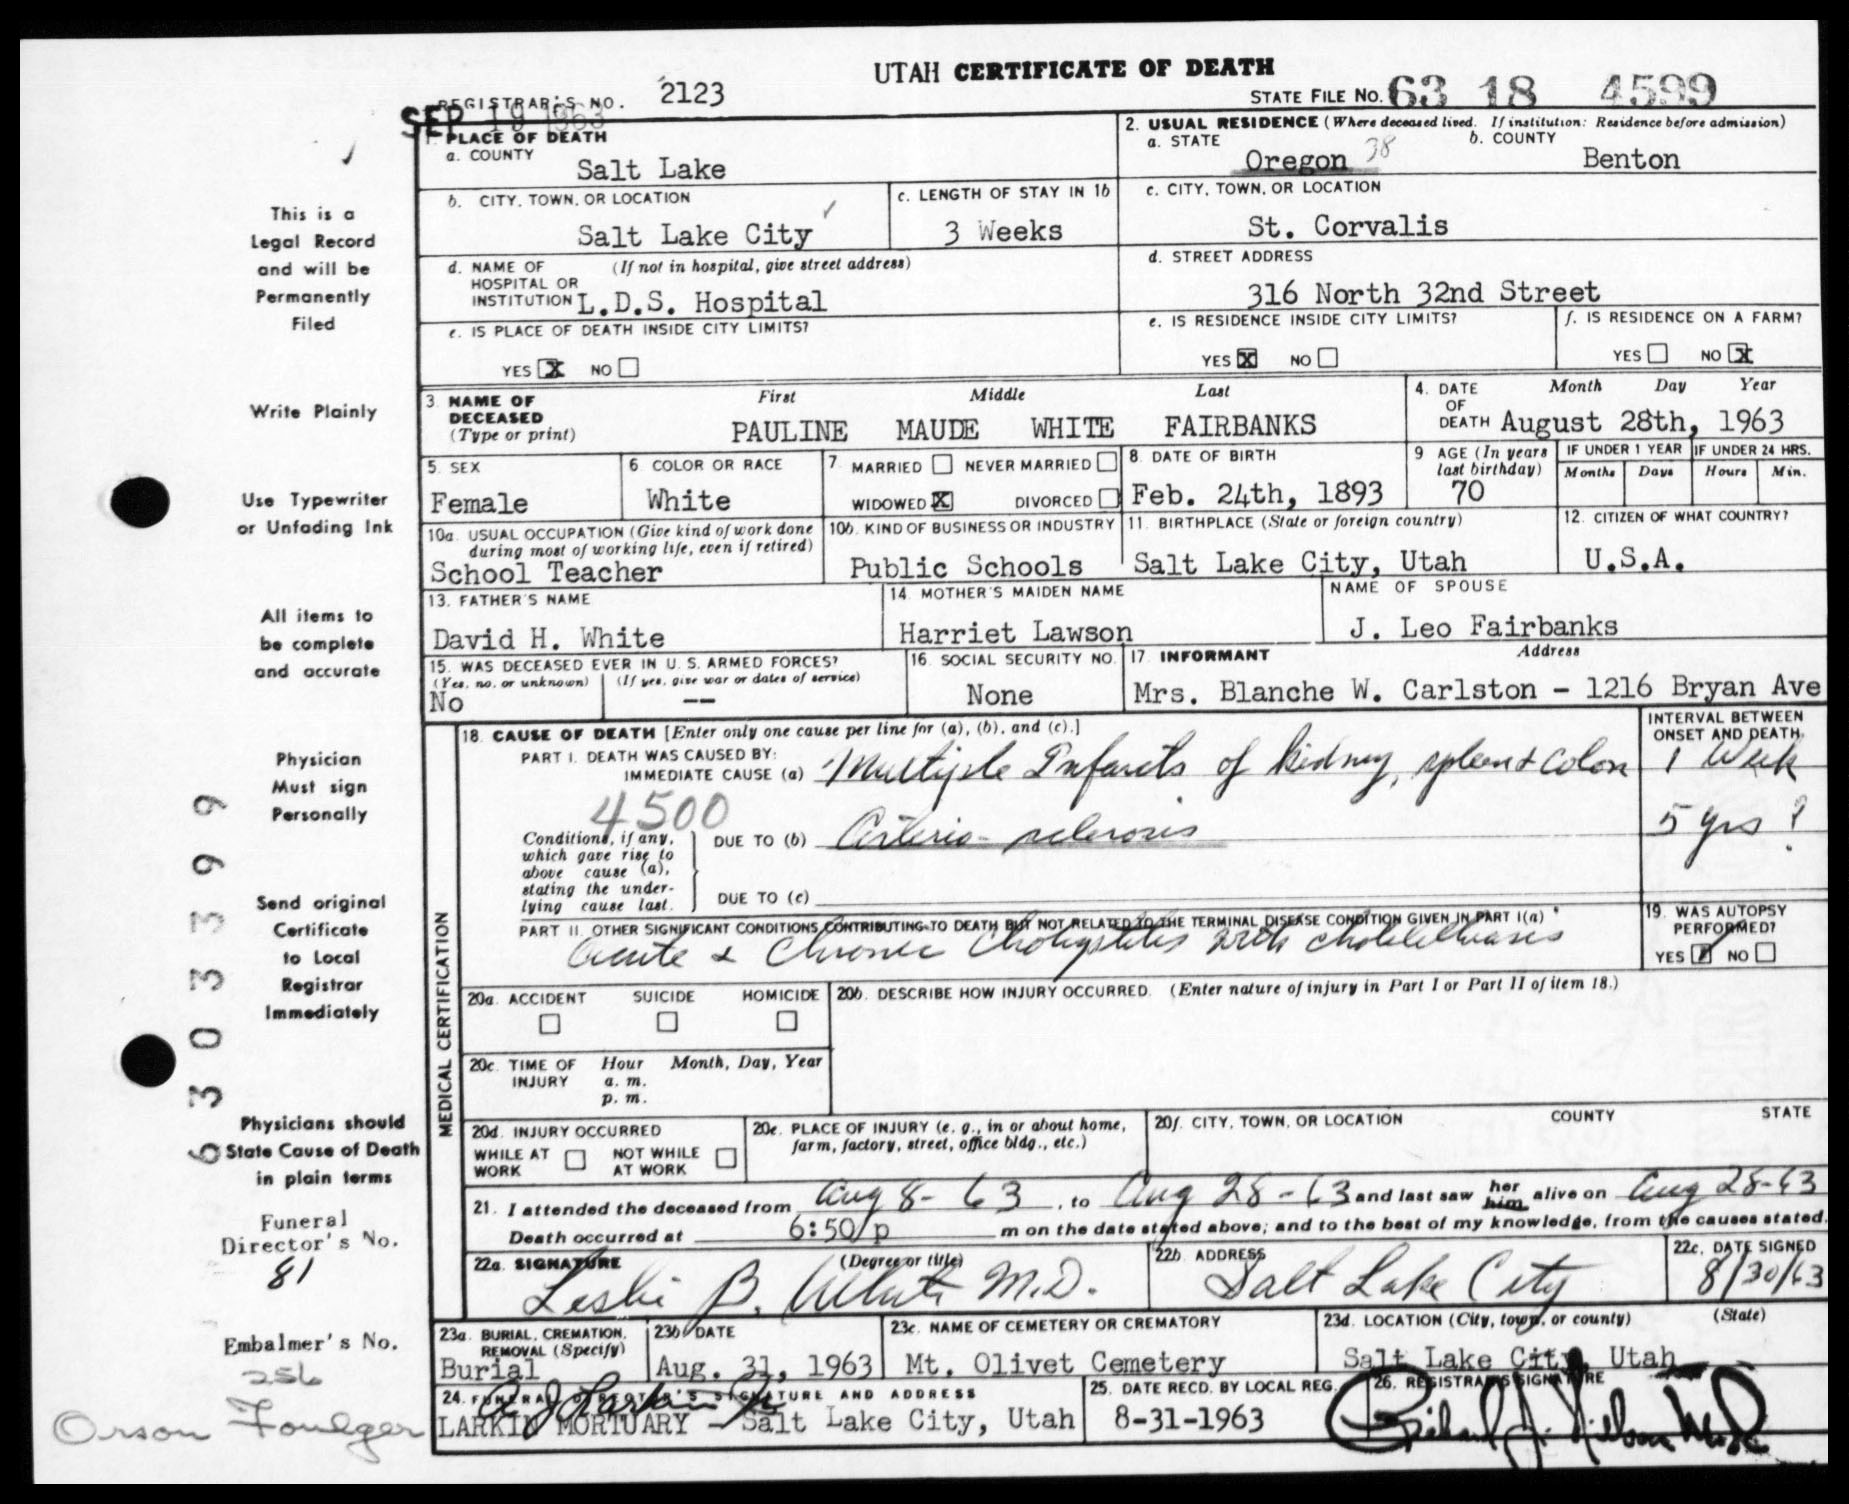 UTAH CERTIFICATE OF DEATH
REGISTRAR'S NO. 2123
STATE FILE NO. 63 18 4599
SEP 19 1963
1. PLACE OF DEATH
a. COUNTY
Salt Lake
2. USUAL RESIDENCE (Where deceased lived. If institution: Residence before admission)
a. STATE Oregon 38
b. COUNTY Benton
b. CITY, TOWN, OR LOCATION
Salt Lake City
c. LENGTH OF STAY IN 1b
3 Weeks
c. CITY, TOWN, OR LOCATION
St. Corvalis
d. NAME OF HOSPITAL OR INSTITUTION (If not in hospital, give street address)
L.D.S. Hospital
d. STREET ADDRESS
316 North 32nd Street
e. IS PLACE OF DEATH INSIDE CITY LIMITS?
YES X NO
e. IS RESIDENCE INSIDE CITY LIMITS?
YES X NO
f. IS RESIDENCE ON A FARM?
YES NO X
3. NAME OF DECEASED (Type or print)
First Middle Last
PAULINE MAUDE WHITE FAIRBANKS
4. DATE OF DEATH Month Day Year
August 28th, 1963
5. SEX
Female
6 COLOR OR RACE
White
7. MARRIED NEVER MARRIED
WIDOWED X DIVORCED
8. DATE OF BIRTH
Feb. 24th, 1893
9 AGE (In years last birthday)
70
IF UNDER 1 YEAR
Months Days
IF UNDER 24 HRS.
Hours Min.
10a. USUAL OCCUPATION (Give kind of work done during most of working life, even if retired)
School Teacher
10b. KIND OF BUSINESS OR INDUSTRY
Public Schools
11. BIRTHPLACE (State or foreign country)
Salt Lake City, Utah
12. CITIZEN OF WHAT COUNTRY?
U.S.A.
13. FATHER'S NAME
David H. White
14. MOTHER'S MAIDEN NAME
Harriet Lawson
NAME OF SPOUSE
J. Leo Fairbanks
15. WAS DECEASED EVER IN U. S. ARMED FORCES?
(Yes, no, or unknown) (If yes, give war or dates of service)
No --
16. SOCIAL SECURITY NO.
None
17. INFORMANT Address
Mrs. Blanche W. Carlston - 1216 Bryan Ave
MEDICAL CERTIFICATION
18. CAUSE OF DEATH [Enter only one cause per line for (a), (b), and (c).]
INTERVAL BETWEEN ONSET AND DEATH
PART I. DEATH WAS CAUSED BY:
IMMEDIATE CAUSE (a) Multiple Infarcts of kidney, spleen & colon 1 Week
4500
Conditions, if any, which gave rise to above cause (a), stating the underlying cause last.
DUE TO (b) Arterio-sclerosis 5 yrs ?
DUE TO (c)
PART II. OTHER SIGNIFICANT CONDITIONS CONTRIBUTING TO DEATH BUT NOT RELATED TO THE TERMINAL DISEASE CONDITION GIVEN IN PART I(a)
Acute & Chronic with
19. WAS AUTOPSY PERFORMED?
YES NO
20a. ACCIDENT SUICIDE HOMICIDE
20b. DESCRIBE HOW INJURY OCCURRED. (Enter nature of injury in Part I or Part II of item 18.)
20c. TIME OF INJURY Hour Month, Day, Year
a. m.
p. m.
20d. INJURY OCCURRED
WHILE AT WORK NOT WHILE AT WORK
20e. PLACE OF INJURY (e. g., in or about home, farm, factory, street, office bldg., etc.)
20f. CITY, TOWN, OR LOCATION COUNTY STATE
21. I attended the deceased from Aug 8-63, to Aug 28-63 and last saw her him alive on Aug 28-63
Death occurred at 6:50 p m on the date stated above; and to the best of my knowledge, from the causes stated.
22a. SIGNATURE (Degree or title)
Leslie B. White M.D.
22b. ADDRESS
Salt Lake City
22c. DATE SIGNED
8/30/63
23a. BURIAL, CREMATION, REMOVAL (Specify)
Burial
23b DATE
Aug. 31, 1963
23c. NAME OF CEMETERY OR CREMATORY
Mt. Olivet Cemetery
23d. LOCATION (City, town, or county) (State)
Salt Lake City, Utah
24. FUNERAL DIRECTOR'S SIGNATURE AND ADDRESS
LARKIN MORTUARY - Salt Lake City, Utah
25. DATE RECD. BY LOCAL REG.
8-31-1963
26. REGISTRAR'S SIGNATURE
This is a
Legal Record
and will be
Permanently
Filed
Write Plainly
Use Typewriter
or Unfading Ink
All items to
be complete
and accurate
Physician
Must sign
Personally
Send original
Certificate
to Local
Registrar
Immediately
Physicians should
State Cause of Death
in plain terms
Funeral
Director's No.
81
Embalmer's No.
256
Orson Foulger
6303399